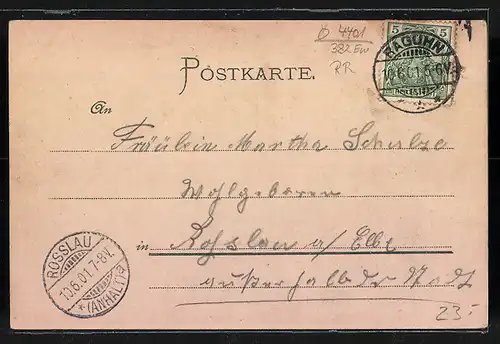 D 4401
382 Ew
RR
5 5
RAGUHN
10.6.01.5-6V.
POSTKARTE.
An
Fräulein Martha Schulze
Wohlgeboren
in Roßlau a/ Elbe
außerhalb der Stadt
ROSSLAU
10.6.01.7-8V.
* (ANHALT) *
23.-